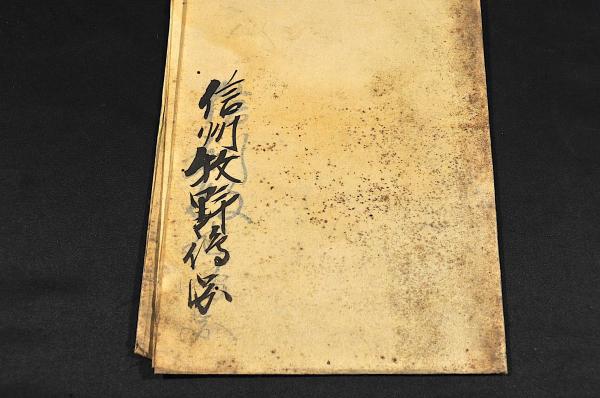 信州牧野傳